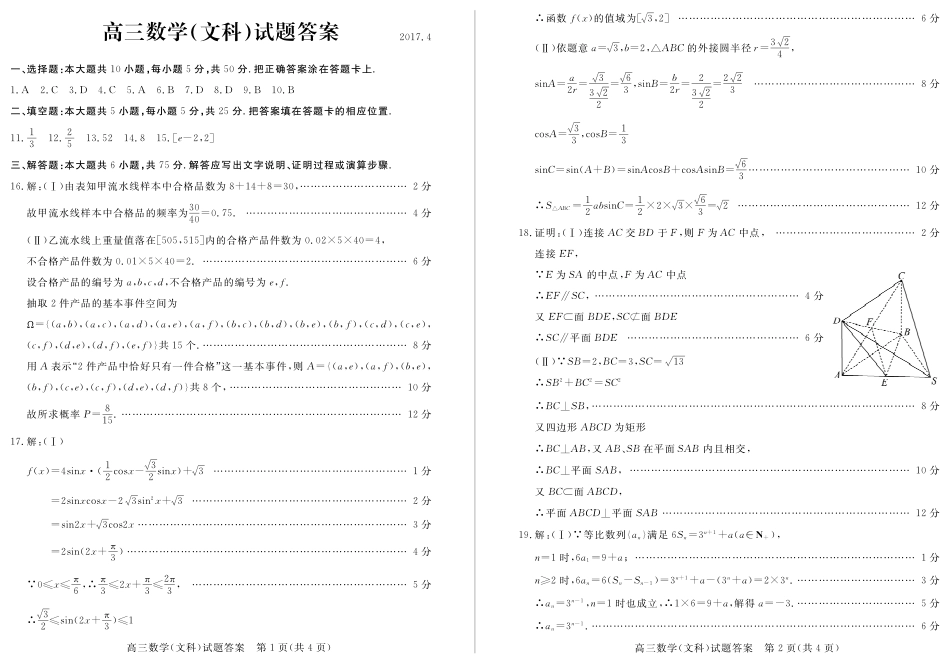 高三数学(文科)试题答案 2017.4
一、选择题:本大题共 10 小题,每小题 5 分,共 50 分.把正确答案涂在答题卡上.
1.A 2.C 3.D 4.C 5.A 6.B 7.D 8.D 9.B 10.B
二、填空题:本大题共 5 小题,每小题 5 分,共 25 分.把答案填在答题卡的相应位置.
11. 1/3 12. 2/5 13.52 14.8 15.[e-2,2]
三、解答题:本大题共 6 小题,共 75 分.解答应写出文字说明、证明过程或演算步骤.
16.解:(Ⅰ)由表知甲流水线样本中合格品数为 8+14+8=30,…………………………… 2 分
故甲流水线样本中合格品的频率为 30/40=0.75. …………………………… 4 分
(Ⅱ)乙流水线上重量值落在[505,515]内的合格产品件数为 0.02×5×40=4,
不合格产品件数为 0.01×5×40=2. …………………………… 6 分
设合格产品的编号为 a,b,c,d,不合格产品的编号为 e,f.
抽取 2 件产品的基本事件空间为
Ω={(a,b),(a,c),(a,d),(a,e),(a,f),(b,c),(b,d),(b,e),(b,f),(c,d),(c,e),
(c,f),(d,e),(d,f),(e,f)}共 15 个. …………………………… 8 分
用 A 表示“2 件产品中恰好只有一件合格”这一基本事件,则 A={(a,e),(a,f),(b,e),
(b,f),(c,e),(c,f),(d,e),(d,f)}共 8 个, …………………………… 10 分
故所求概率 P=8/15. …………………………… 12 分
17.解:(Ⅰ)
f(x)=4sinx·(1/2cosx-√3/2sinx)+√3 …………………………… 1 分
=2sinxcosx-2√3sin²x+√3 …………………………… 2 分
=sin2x+√3cos2x …………………………… 3 分
=2sin(2x+π/3) …………………………… 4 分
∵0≤x≤π/6,∴π/3≤2x+π/3≤2π/3, …………………………… 5 分
∴√3/2≤sin(2x+π/3)≤1
高三数学(文科)试题答案 第 1 页(共 4 页)
∴函数 f(x)的值域为[√3,2] …………………………… 6 分
(Ⅱ)依题意 a=√3,b=2,△ABC 的外接圆半径 r=3√2/4,
sinA=a/2r=√3/(3√2/2)=√6/3,sinB=b/2r=2/(3√2/2)=2√2/3 …………………………… 8 分
cosA=√3/3,cosB=1/3
sinC=sin(A+B)=sinAcosB+cosAsinB=√6/3 …………………………… 10 分
∴S△ABC=1/2absinC=1/2×2×√3×√6/3=√2 …………………………… 12 分
18.证明:(Ⅰ)连接 AC 交 BD 于 F,则 F 为 AC 中点, …………………………… 2 分
连接 EF,
∵E 为 SA 的中点,F 为 AC 中点
∴EF∥SC, …………………………… 4 分
又 EF⊂面 BDE,SC⊄面 BDE
∴SC∥平面 BDE …………………………… 6 分
(Ⅱ)∵SB=2,BC=3,SC=√13
∴SB²+BC²=SC²
∴BC⊥SB, …………………………… 8 分
又四边形 ABCD 为矩形
∴BC⊥AB,又 AB、SB 在平面 SAB 内且相交,
∴BC⊥平面 SAB, …………………………… 10 分
又 BC⊂面 ABCD,
∴平面 ABCD⊥平面 SAB …………………………… 12 分
C
D
F
B
A
E
S
19.解:(Ⅰ)∵等比数列{aₙ}满足 6Sₙ=3ⁿ⁺¹+a(a∈N₊),
n=1 时,6a₁=9+a; …………………………… 1 分
n≥2 时,6aₙ=6(Sₙ-Sₙ₋₁)=3ⁿ⁺¹+a-(3ⁿ+a)=2×3ⁿ. …………………………… 3 分
∴aₙ=3ⁿ⁻¹,n=1 时也成立,∴1×6=9+a,解得 a=-3. …………………………… 5 分
∴aₙ=3ⁿ⁻¹. …………………………… 6 分
高三数学(文科)试题答案 第 2 页(共 4 页)